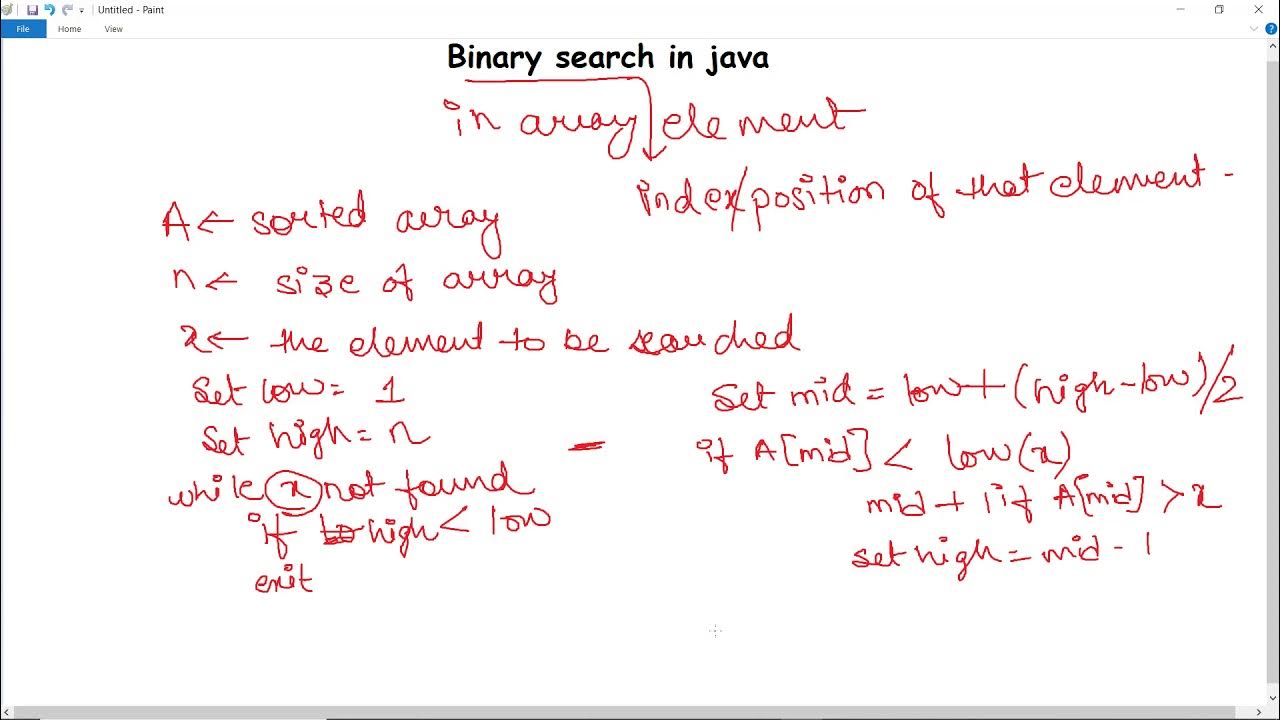 Untitled - Paint
File Home View
Binary search in java
in array element
index/position of that element -
A ← sorted array
n ← size of array
x ← the element to be searched
Set low = 1
Set high = n
while x not found
if high < low
exit
Set mid = low + (high - low)/2
if A[mid] < low(x)
mid + 1 if A[mid] > x
set high = mid - 1